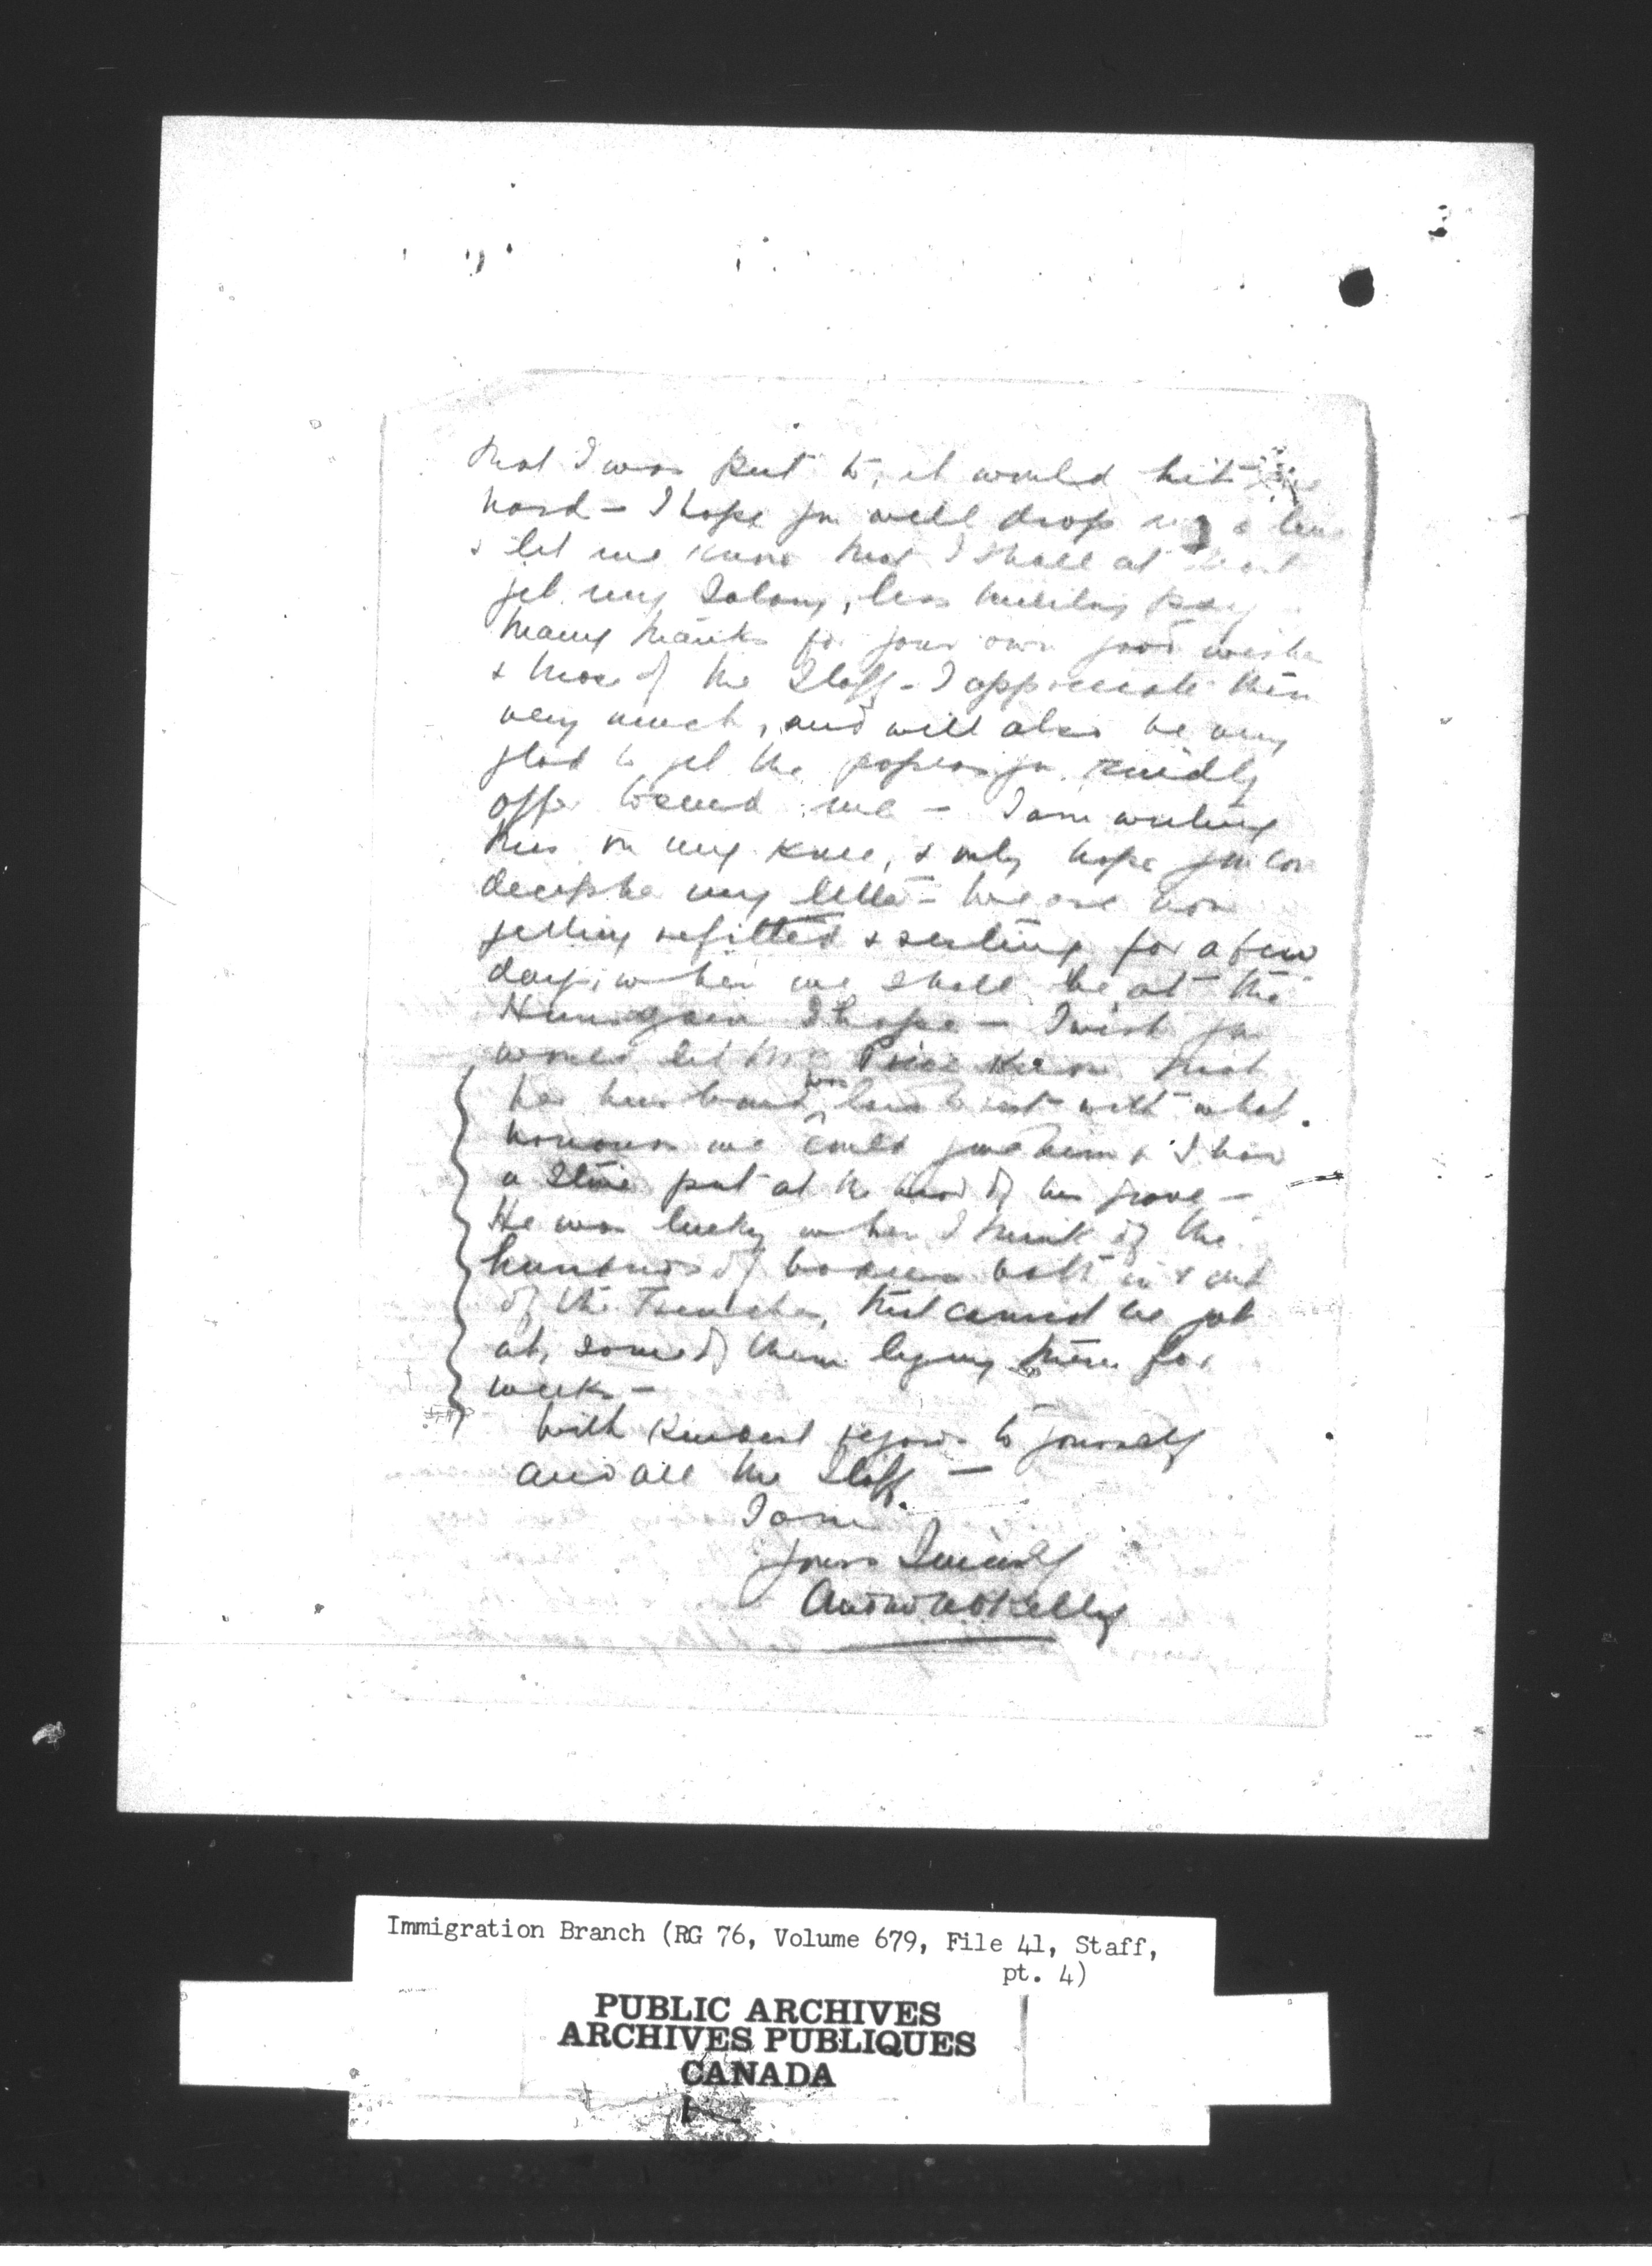 that I was put to, it would hit me
hard - I hope you will drop me a line
& let me know that I shall at least
get my Salary, less military pay
Many thanks for your own good wishes
& those of the Staff - I appreciate them
very much, and will also be very
glad to get the papers you kindly
offer to send me - I am writing
this on my knee, & only hope you can
decipher my letter - We are now
getting refitted & resting for a few
days, when we shall be at the
Huns again I hope - I wish you
would let Mrs Price know that
her husband was laid to rest with what
honours we could give him & I have
a stone put at the head of his grave -
He was lucky when I think of the
hundreds of bodies both in & out
of the Trenches, that cannot be got
at, some of them lying there for
weeks -
With kindest regards to yourself
and all the Staff -
I am
Yours Sincerely
Kelly
Immigration Branch (RG 76, Volume 679, File 41, Staff,
pt. 4)
PUBLIC ARCHIVES
ARCHIVES PUBLIQUES
CANADA